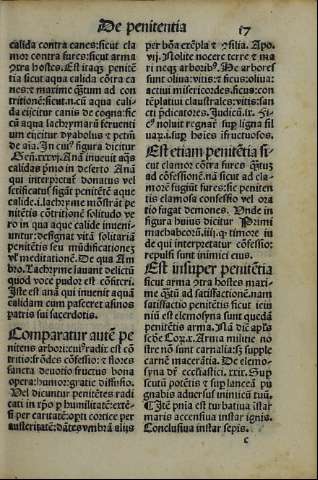 De penitentia
17
calida contra canes: sicut cla
mor contra fures: sicut arma
ꝯtra hostes. Est itaqꝫ penitē
tia sicut aqua calida cōtra ca
nes: ⁊ maxime q̄tum ad con
tritionē: sicut.n.cū aqua cali
da eijcitur canis de coqna: sic
cū aqua lachrymarū feruenti
um eijcitur dyabolus ⁊ petm̄
de aīa. In cuiꝰ figura dicitur
Geñ.xxxvj. Anā inuenit aq̄s
calidas p̄mo in deserto Anā
qui interpretat̄ donatus vel
scetificatus figāt penitētē aque
calide.i.lachryme mōstrāt pe
nitētis cōtritionē solitudo ve
ro in qua aque calide inueni
untur: designat vitā solitariā
penitētis seu mūdificationez
vl̓ meditationē. De qua Am
bro. Lachryme lauant delictū
quod voce pudor est cōfiteri.
Iste est anā qui inuenit aquā
calidam cum pasceret asinos
patris sui sacerdotis.
Comparatur autē pe
nitens arbori: cuiꝰ radix est cō
tritio: frōdes cōfessio: ⁊ flores
sancta deuotio fructus bona
opera: humor: gratie diffusio.
Vel dicuntur penitētes radi
cati in xp̄o p̄ humilitatē: extē
si per caritatē: opti cortice per
austeritatē: dātes vmbrā alijs
per bōa exēpla ⁊ ꝯsilia. Apo.
vij. Nolite nocere terre ⁊ ma
ri neqꝫ arboribꝰ. He arbores
sunt oliua: vitis: ⁊ ficus: oliua:
actiui misericordes. ficus: con
tēplatiui claustrales: vitis: san
cti p̄dicatores. Judicū.ix. Si
cꝰ noluit regnar̄ sup̄ ligna sil
uaꝝ.i.sup̄ hoīes īfructuosos.
Est etiam penitētia si
cut clamor cōtra fures q̄tuz
ad cōfessionē. nā sicut ad cla
morē fugiūt fures: sic peniten
tis clamosa confessio vel ora
tio fugat demones. Unde in
figura huius dicitur Primi
machabeorū.iij. ꝙ timore in
de qui interpretatur cōfessio:
repulsi sunt inimici eius.
Est insuper penitētia
sicut arma ꝯtra hostes maxi
me q̄tū ad satisfactionē. nam
satisfactio penitētis sicut ieiu
niū est elemosyna sunt quedā
penitētis arma.
ste no sunt carnalia: s̄ supple
carnē macerātia. De elemo-
syna dr̄ ecclīastici .xxix. Sup̄
scutū potētis ⁊ sup̄ lanceā pu
gnabis aduersus inimicū tuū.
¶ Itē pn̄ia est turbatiua īstar
maris accensiua īstar ignis.
Conclusiua īstar sepis.
c